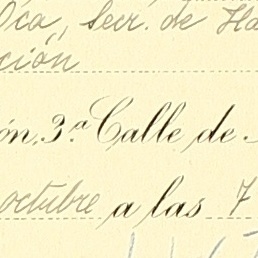 Oca, Secr. de Ha
ción
ón, 3.ª Calle de
octubre a las 7